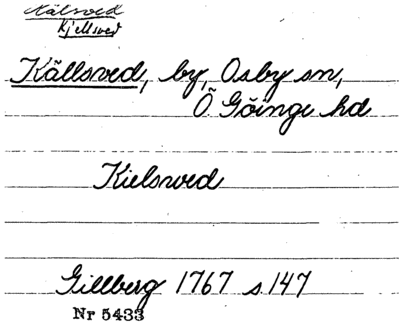 Kälsved
Kjellsved
Källsved, by, Osby sn,
Ö Göinge hd
Kielsved
Gillberg 1767 s 147
Nr 5433